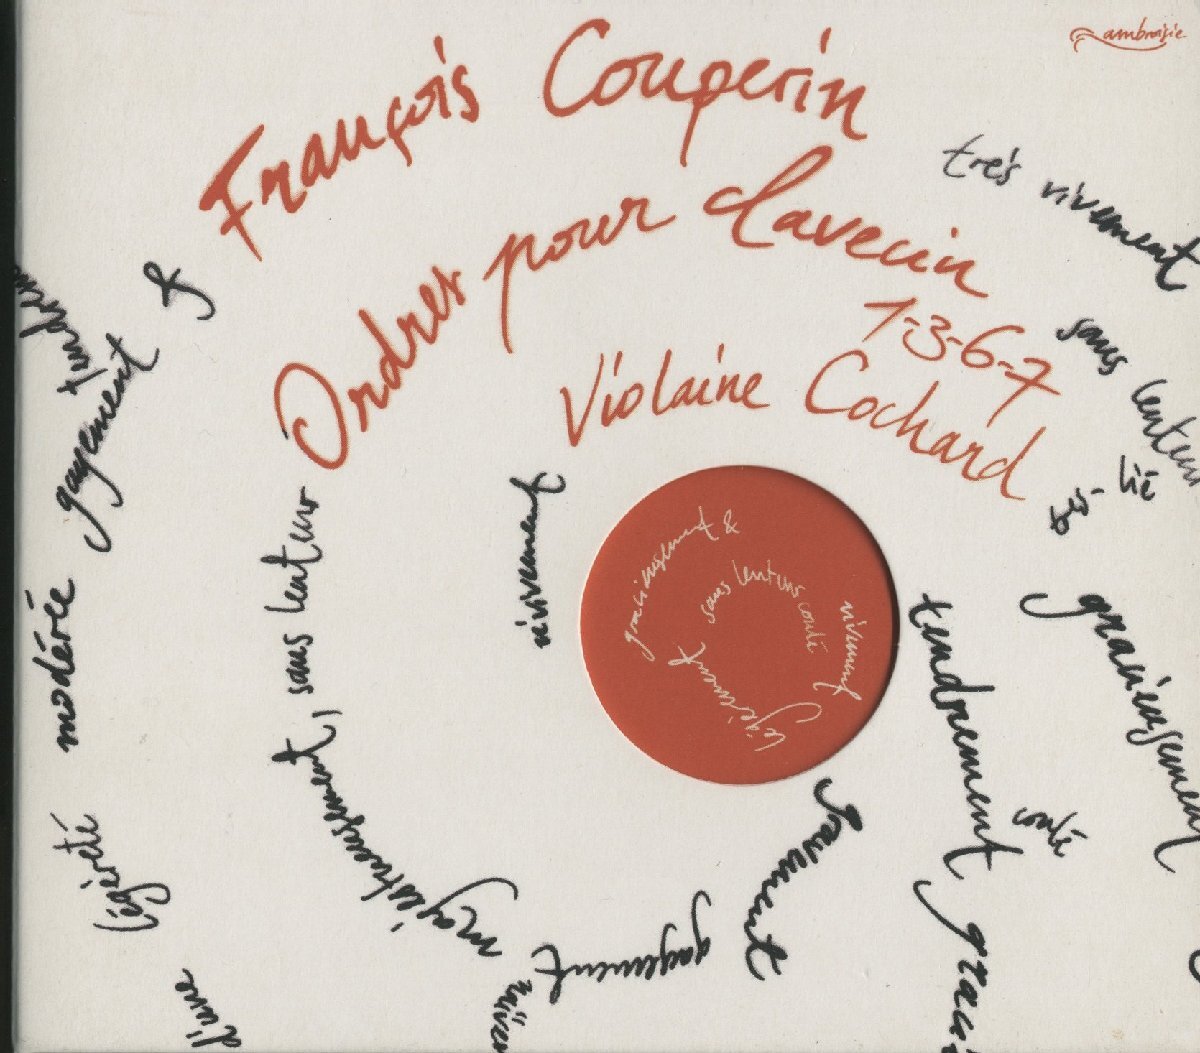 ambroisie
François Couperin
Ordres pour clavecin
1-3-6-7
Violaine Cochard
très vivement
sans lenteur
lié
gracieusement
tendrement
coulé
gravement
gayement
majestueusement, sans lenteur
vivement
gayement &
modérée
d'une légèreté
gracieusement &
sans lenteur
coulé
vivement
légèrement